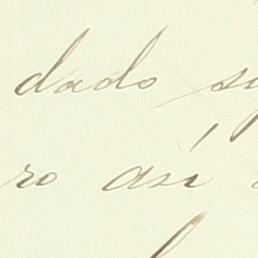 dado
ro así